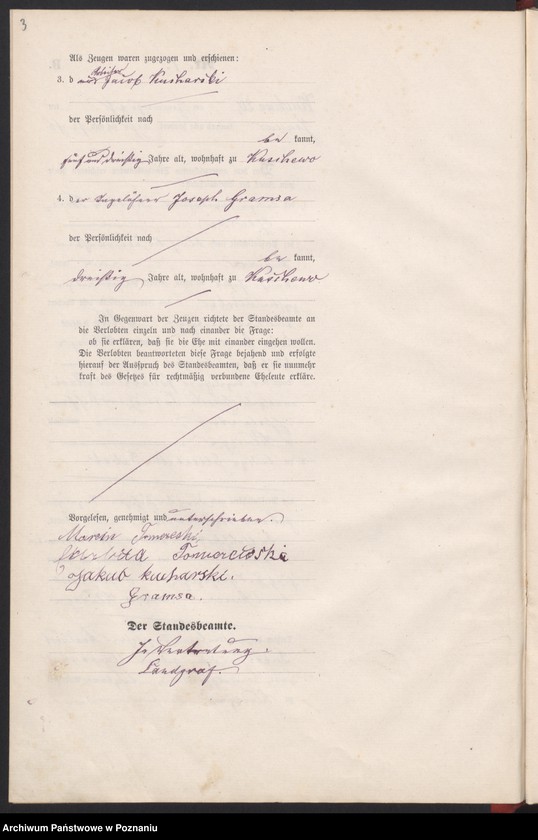 3
Als Zeugen waren zugezogen und erschienen:
3. der Arbeiter Jacob Kucharski
der Persönlichkeit nach
be kannt,
fünf und dreißig Jahre alt, wohnhaft zu Kuschewo
4. der Tagelöhner Joseph Gramsa
der Persönlichkeit nach
be kannt,
dreißig Jahre alt, wohnhaft zu Kuschewo
In Gegenwart der Zeugen richtete der Standesbeamte an
die Verlobten einzeln und nach einander die Frage:
ob sie erklären, daß sie die Ehe mit einander eingehen wollen.
Die Verlobten beantworteten diese Frage bejahend und erfolgte
hierauf der Ausspruch des Standesbeamten, daß er sie nunmehr
kraft des Gesetzes für rechtmäßig verbundene Eheleute erkläre.
Vorgelesen, genehmigt und unterschrieben.
Marcin
Jakub Kucharski.
Gramsa.
Der Standesbeamte.
In Vertretung.
Landgraf.
Archiwum Państwowe w Poznaniu